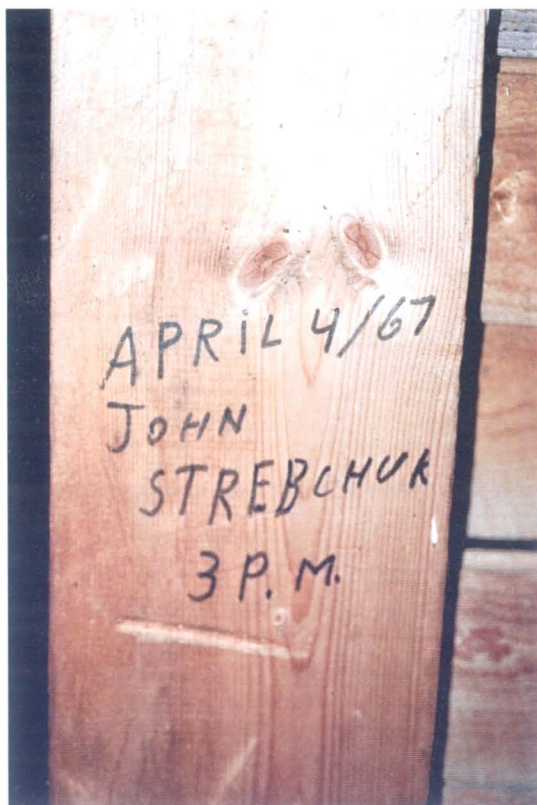 APRiL 4/67
JOHN
STREBCHUK
3 P.M.